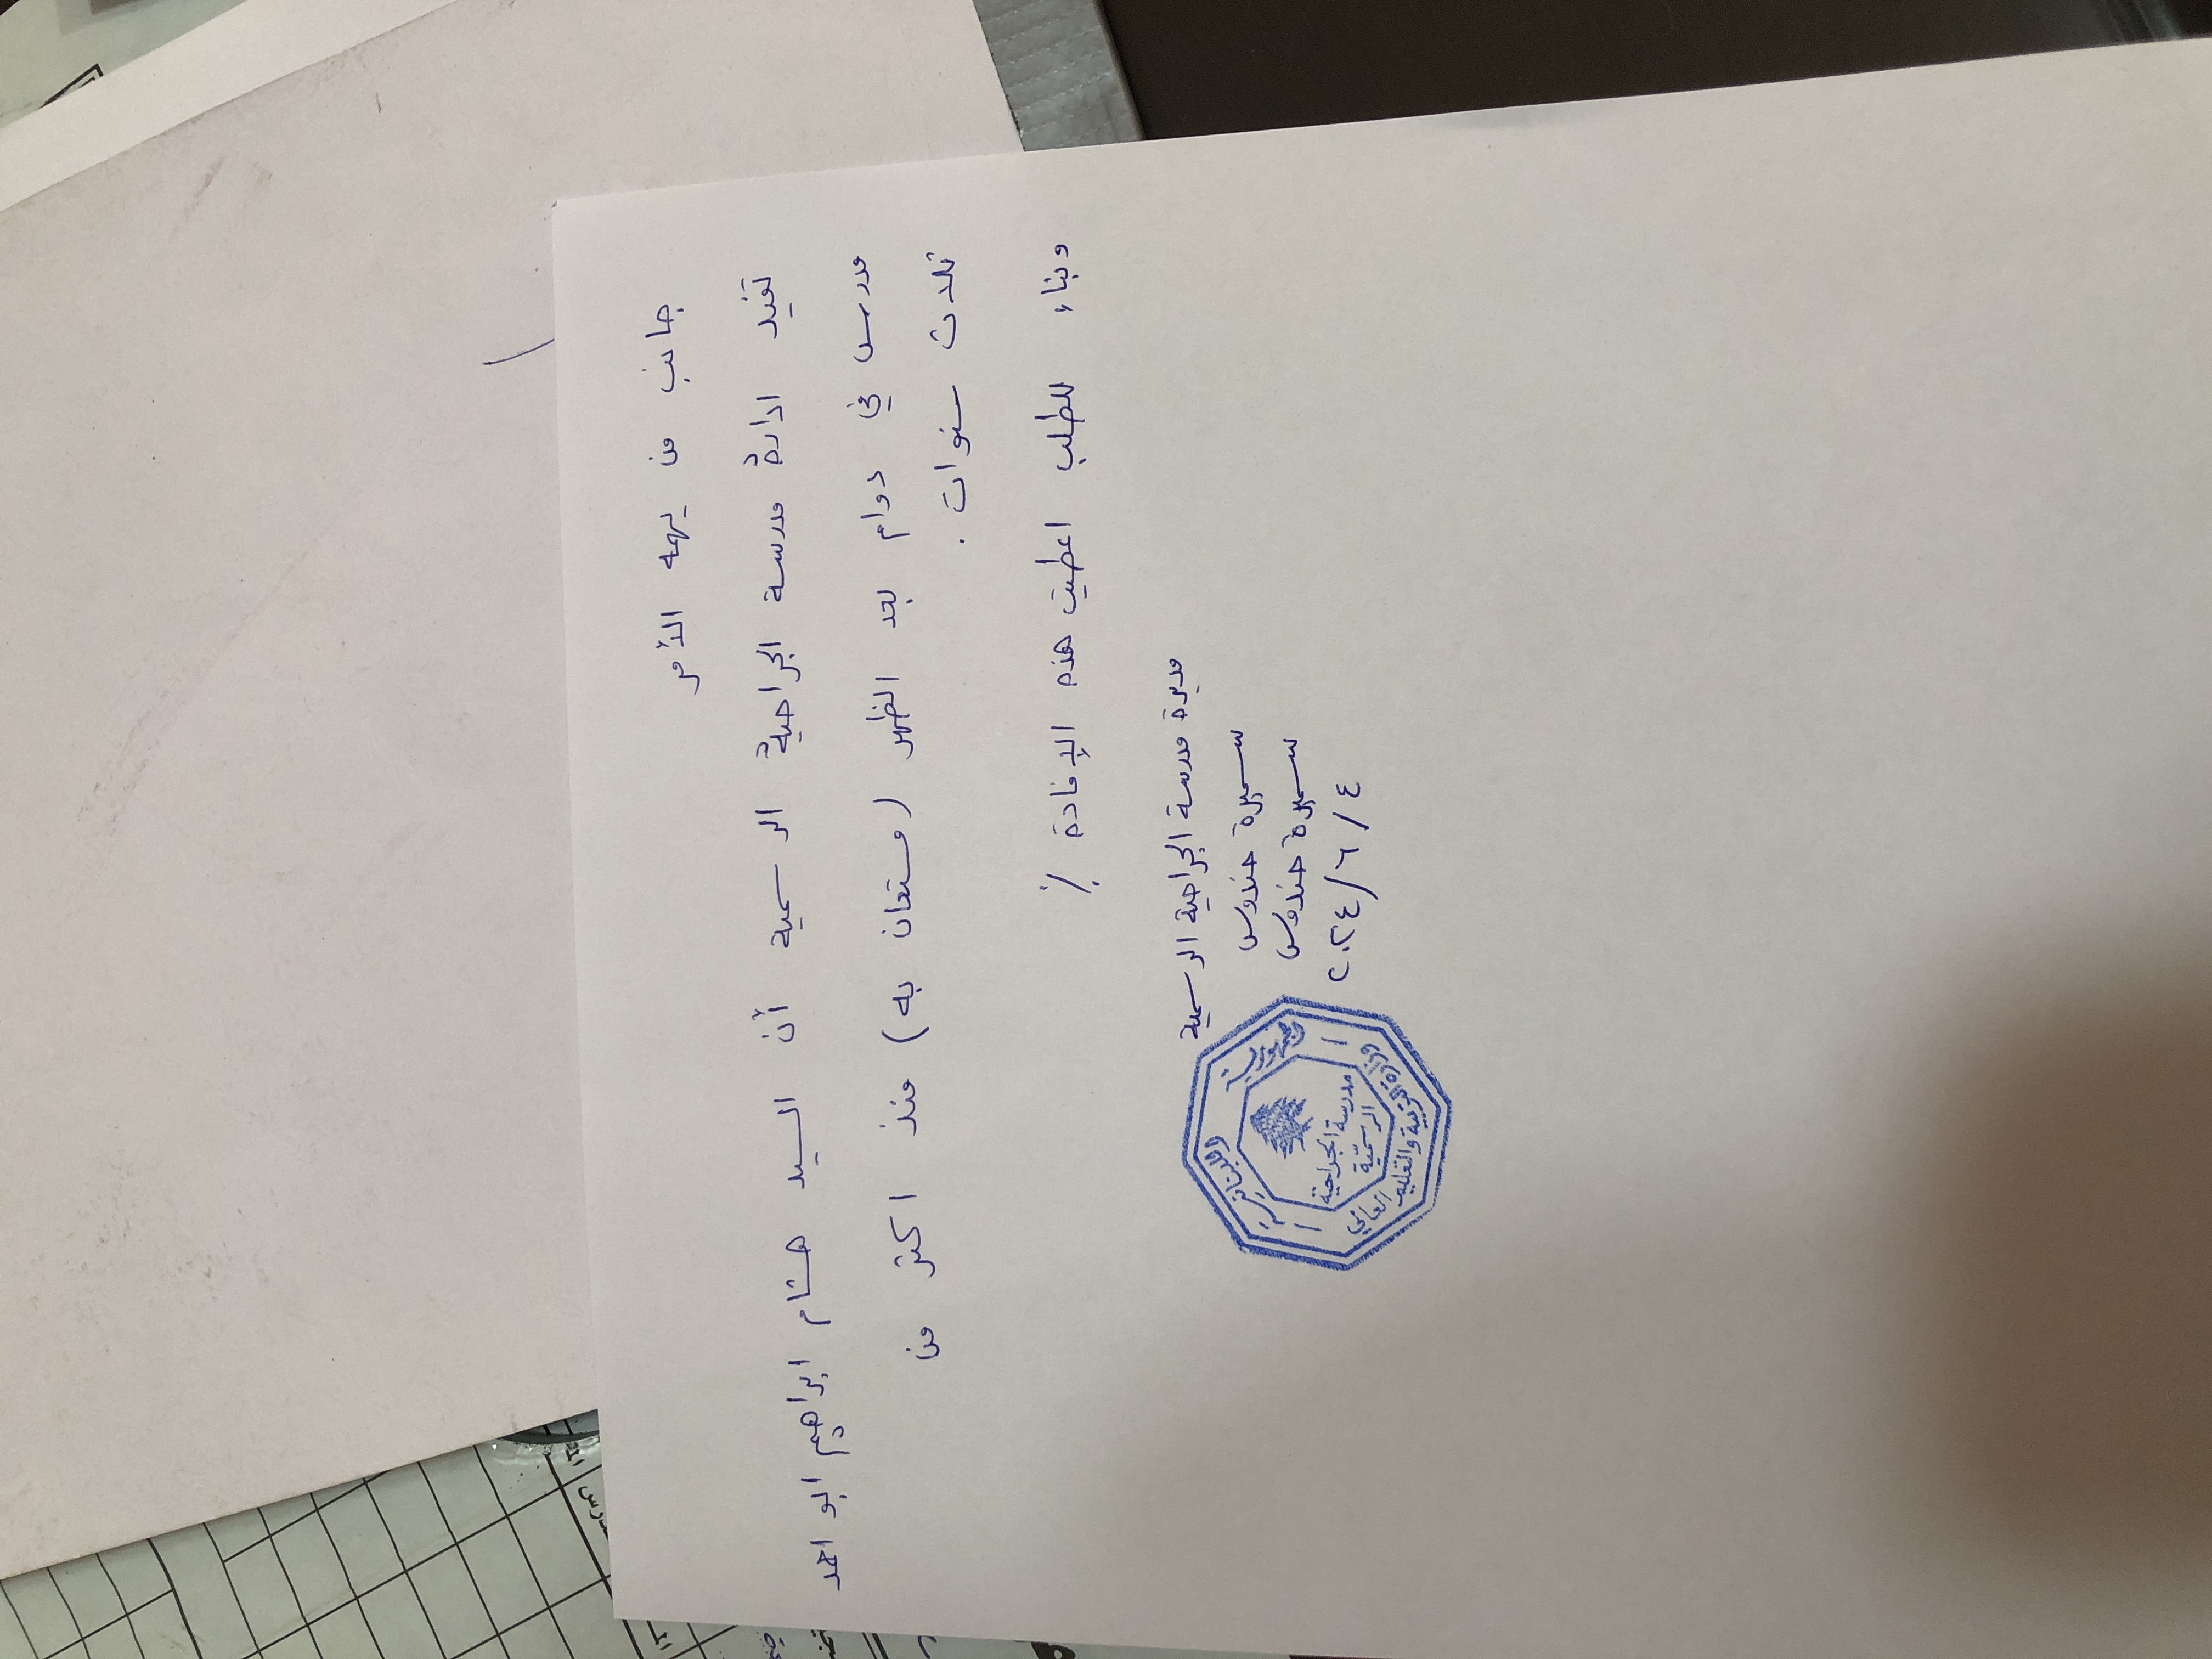 جانب من يهمه الأمر
تفيد ادارة مدرسة الجراحية الرسمية أن السيد هشام ابراهيم ابو احمد
مدرس في دوام بعد الظهر (مستعان به) منذ اكثر من
ثلاث سنوات .
وبناء للطلب اعطيت هذه الإفادة ./
مديرة مدرسة الجراحية الرسمية
سميرة حندوس
سميرة حندوس
٢٠٢٤/٦/٤
الجمهورية اللبنانية
مدرسة الجراحية
الرسميّة
وزارة التربية والتعليم العالي